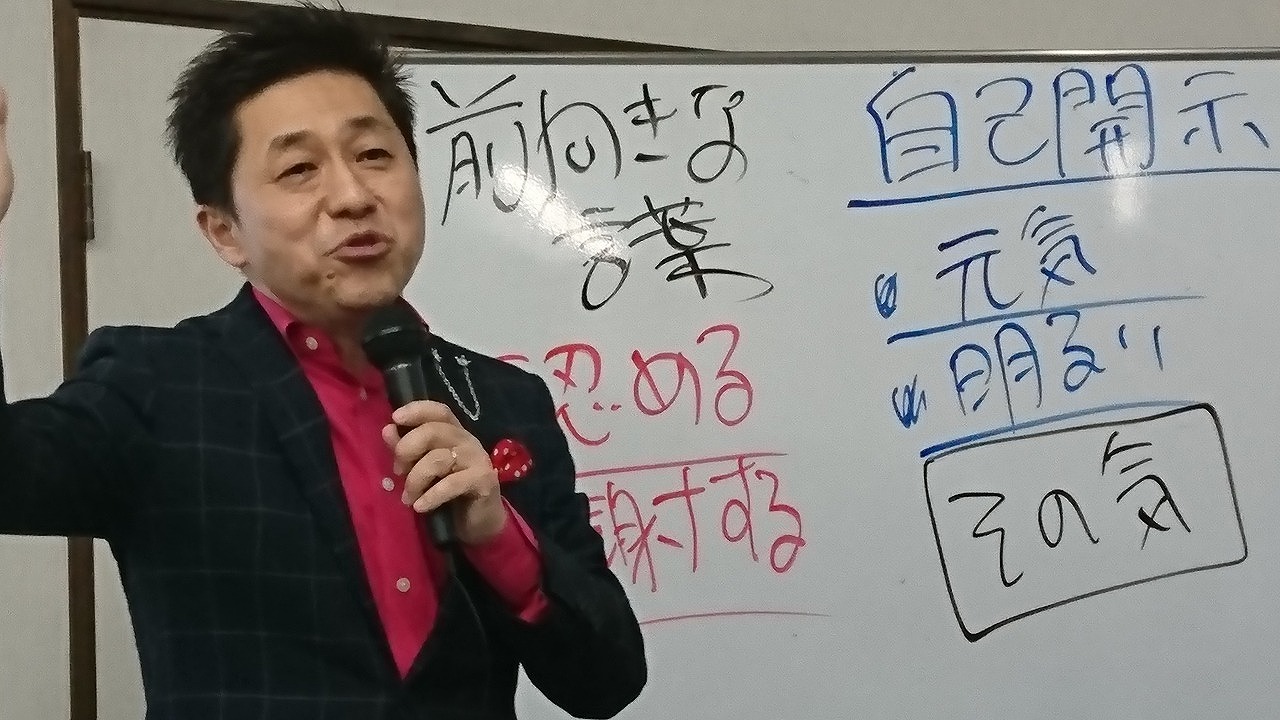 前向きな
言葉
認める
謝する
自己開示
・元気
・明るい
その気